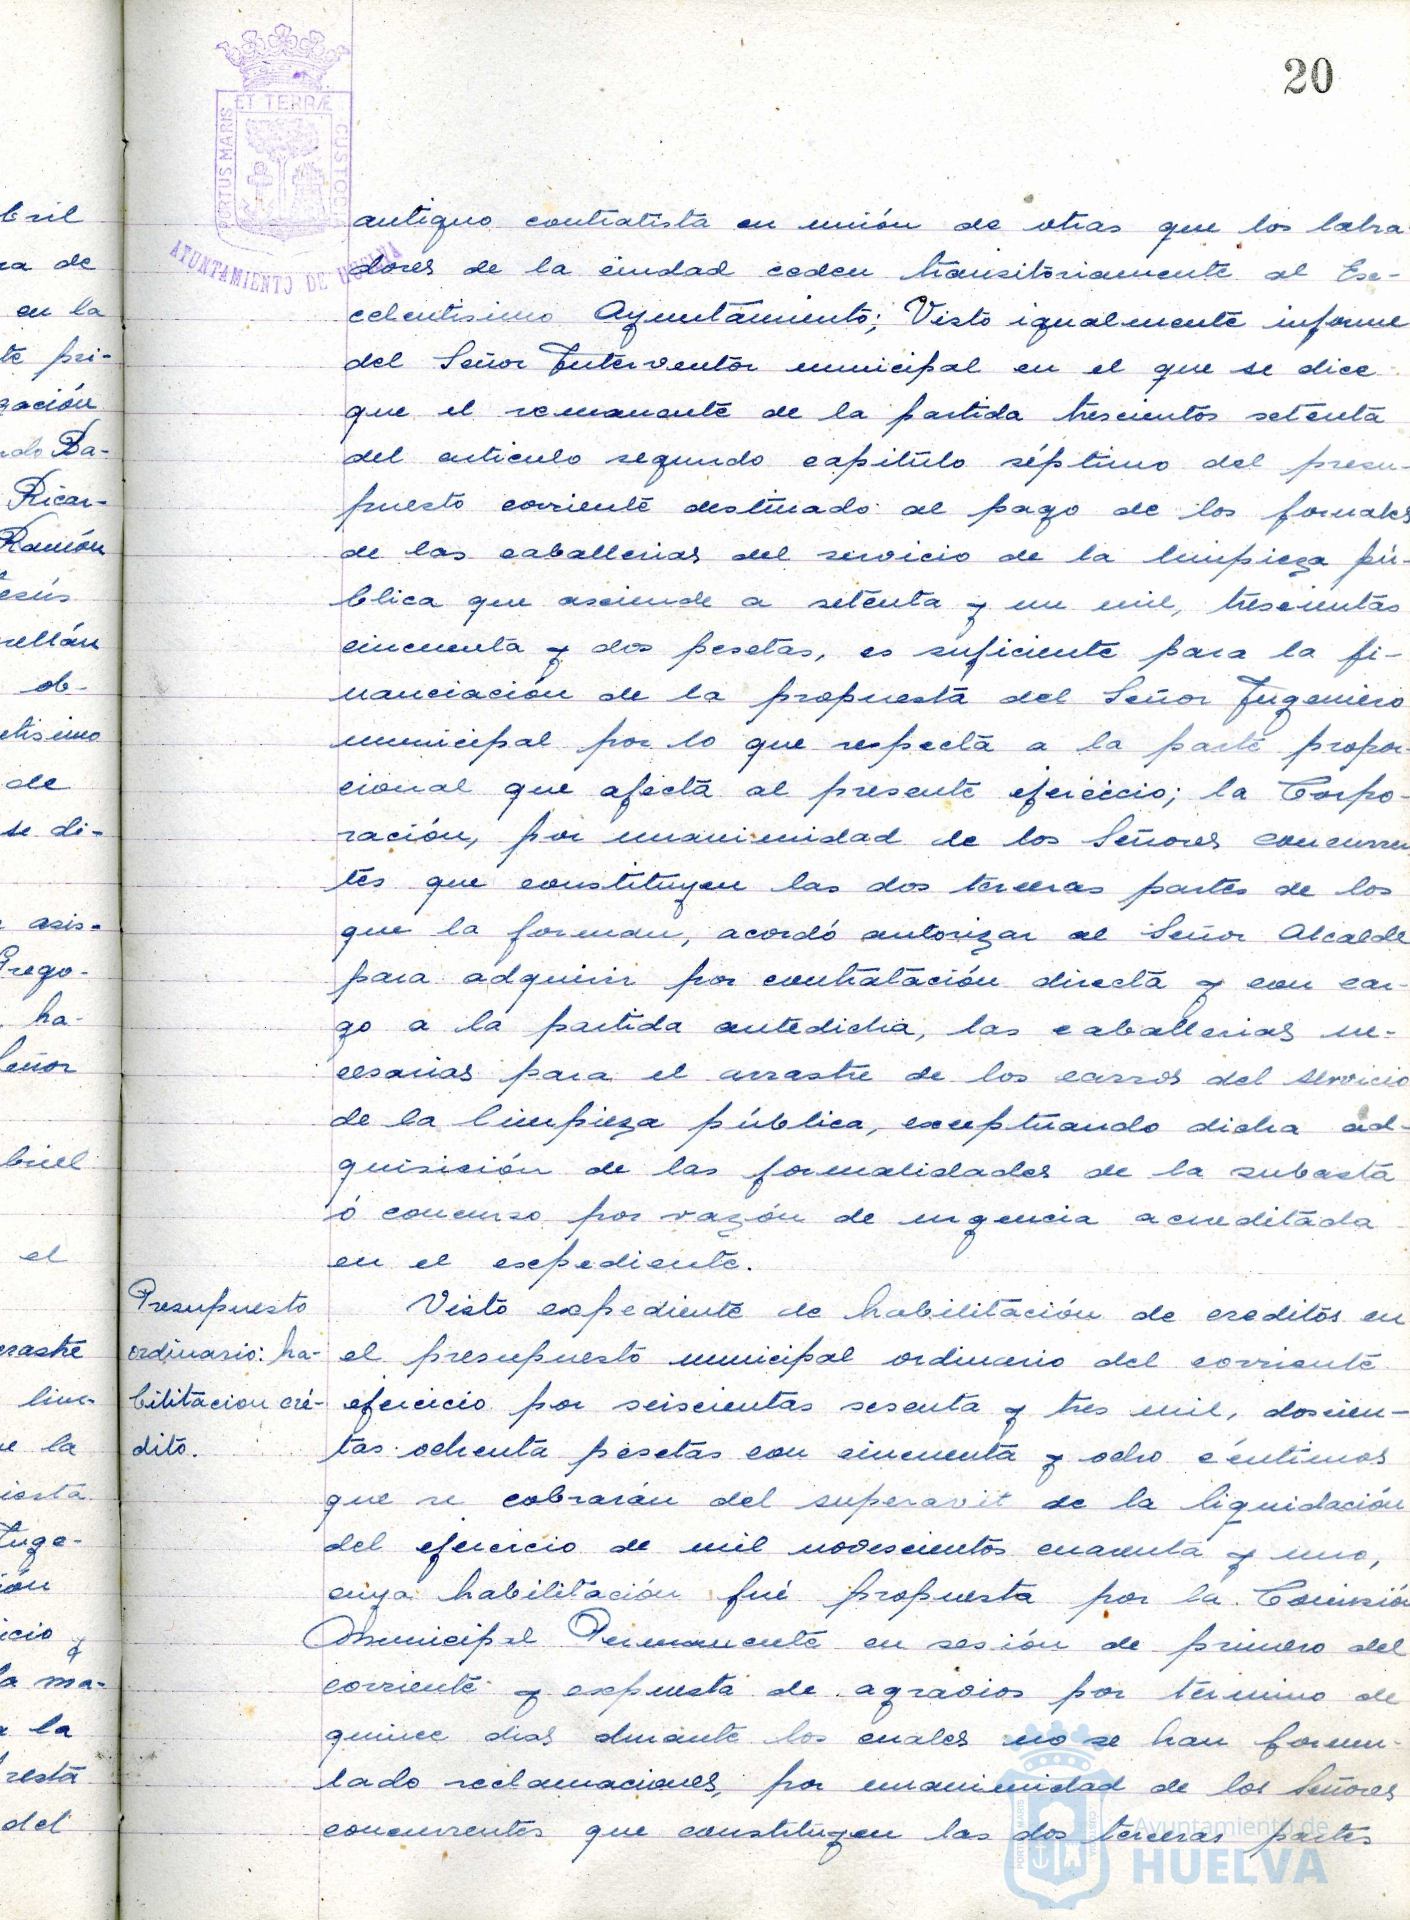 20
ET TERRÆ
PORTUS MARIS
CUSTODIA
AYUNTAMIENTO DE HUELVA
antiguo contratista en unión de otras que los labra-
dores de la ciudad ceden transitoriamente al Exc-
celentisimo Ayuntamiento; Visto igualmente informe
del Señor Interventor municipal en el que se dice
que el remanante de la partida trescientos setenta
del articulo segundo capitulo séptimo del presu-
puesto corriente destinado al pago de los jornales
de las caballerias del servicio de la limpieza pú-
blica que asciende a setenta y un mil, trescientas
cincuenta y dos pesetas, es suficiente para la fi-
nanciación de la propuesta del Señor Ingeniero
municipal por lo que respecta a la parte propor-
cional que afecta al presente ejercicio; la Corpo-
ración, por unanimidad de los Señores concurren
tes que constituyen las dos terceras partes de los
que la forman, acordó autorizar al Señor Alcalde
para adquirir por contratación directa y con car-
go a la partida antedicha, las caballerias ne-
cesarias para el arrastre de los carros del servicio
de la limpieza pública, exceptuando dicha ad-
quisición de las formalidades de la subasta
ó concurso por razón de urgencia acreditada
en el expediente.
Presupuesto
ordinario: ha-
bilitacion cré-
dito.
Visto expediente de habilitación de creditos en
el presupuesto municipal ordinario del corriente
ejercicio por seiscientas sesenta y tres mil, doscien-
tas ochenta pesetas con cincuenta y ocho céntimos
que se cobrarán del superavit de la liquidación
del ejercicio de mil novescientos cuarenta y uno,
cuya habilitación fué propuesta por la Comisión
Municipal Permanente en sesión de primero del
corriente y expuesta de agravios por termino de
quince dias durante los cuales no se han formu-
lado reclamaciones, por unanimidad de los Señores
concurrentes que constituyen las dos terceras partes
bril
ra de
en la
te pri-
gación
ndo Ba-
Ricar-
Ramón
esús
rellán
ob-
ntisimo
de
se di-
asis-
Grego-
ha-
Señor
briel
el
rrastre
lim-
de la
iesta
Inge-
ión
icio y
la ma-
a la
resta
del
Ayuntamiento de
HUELVA